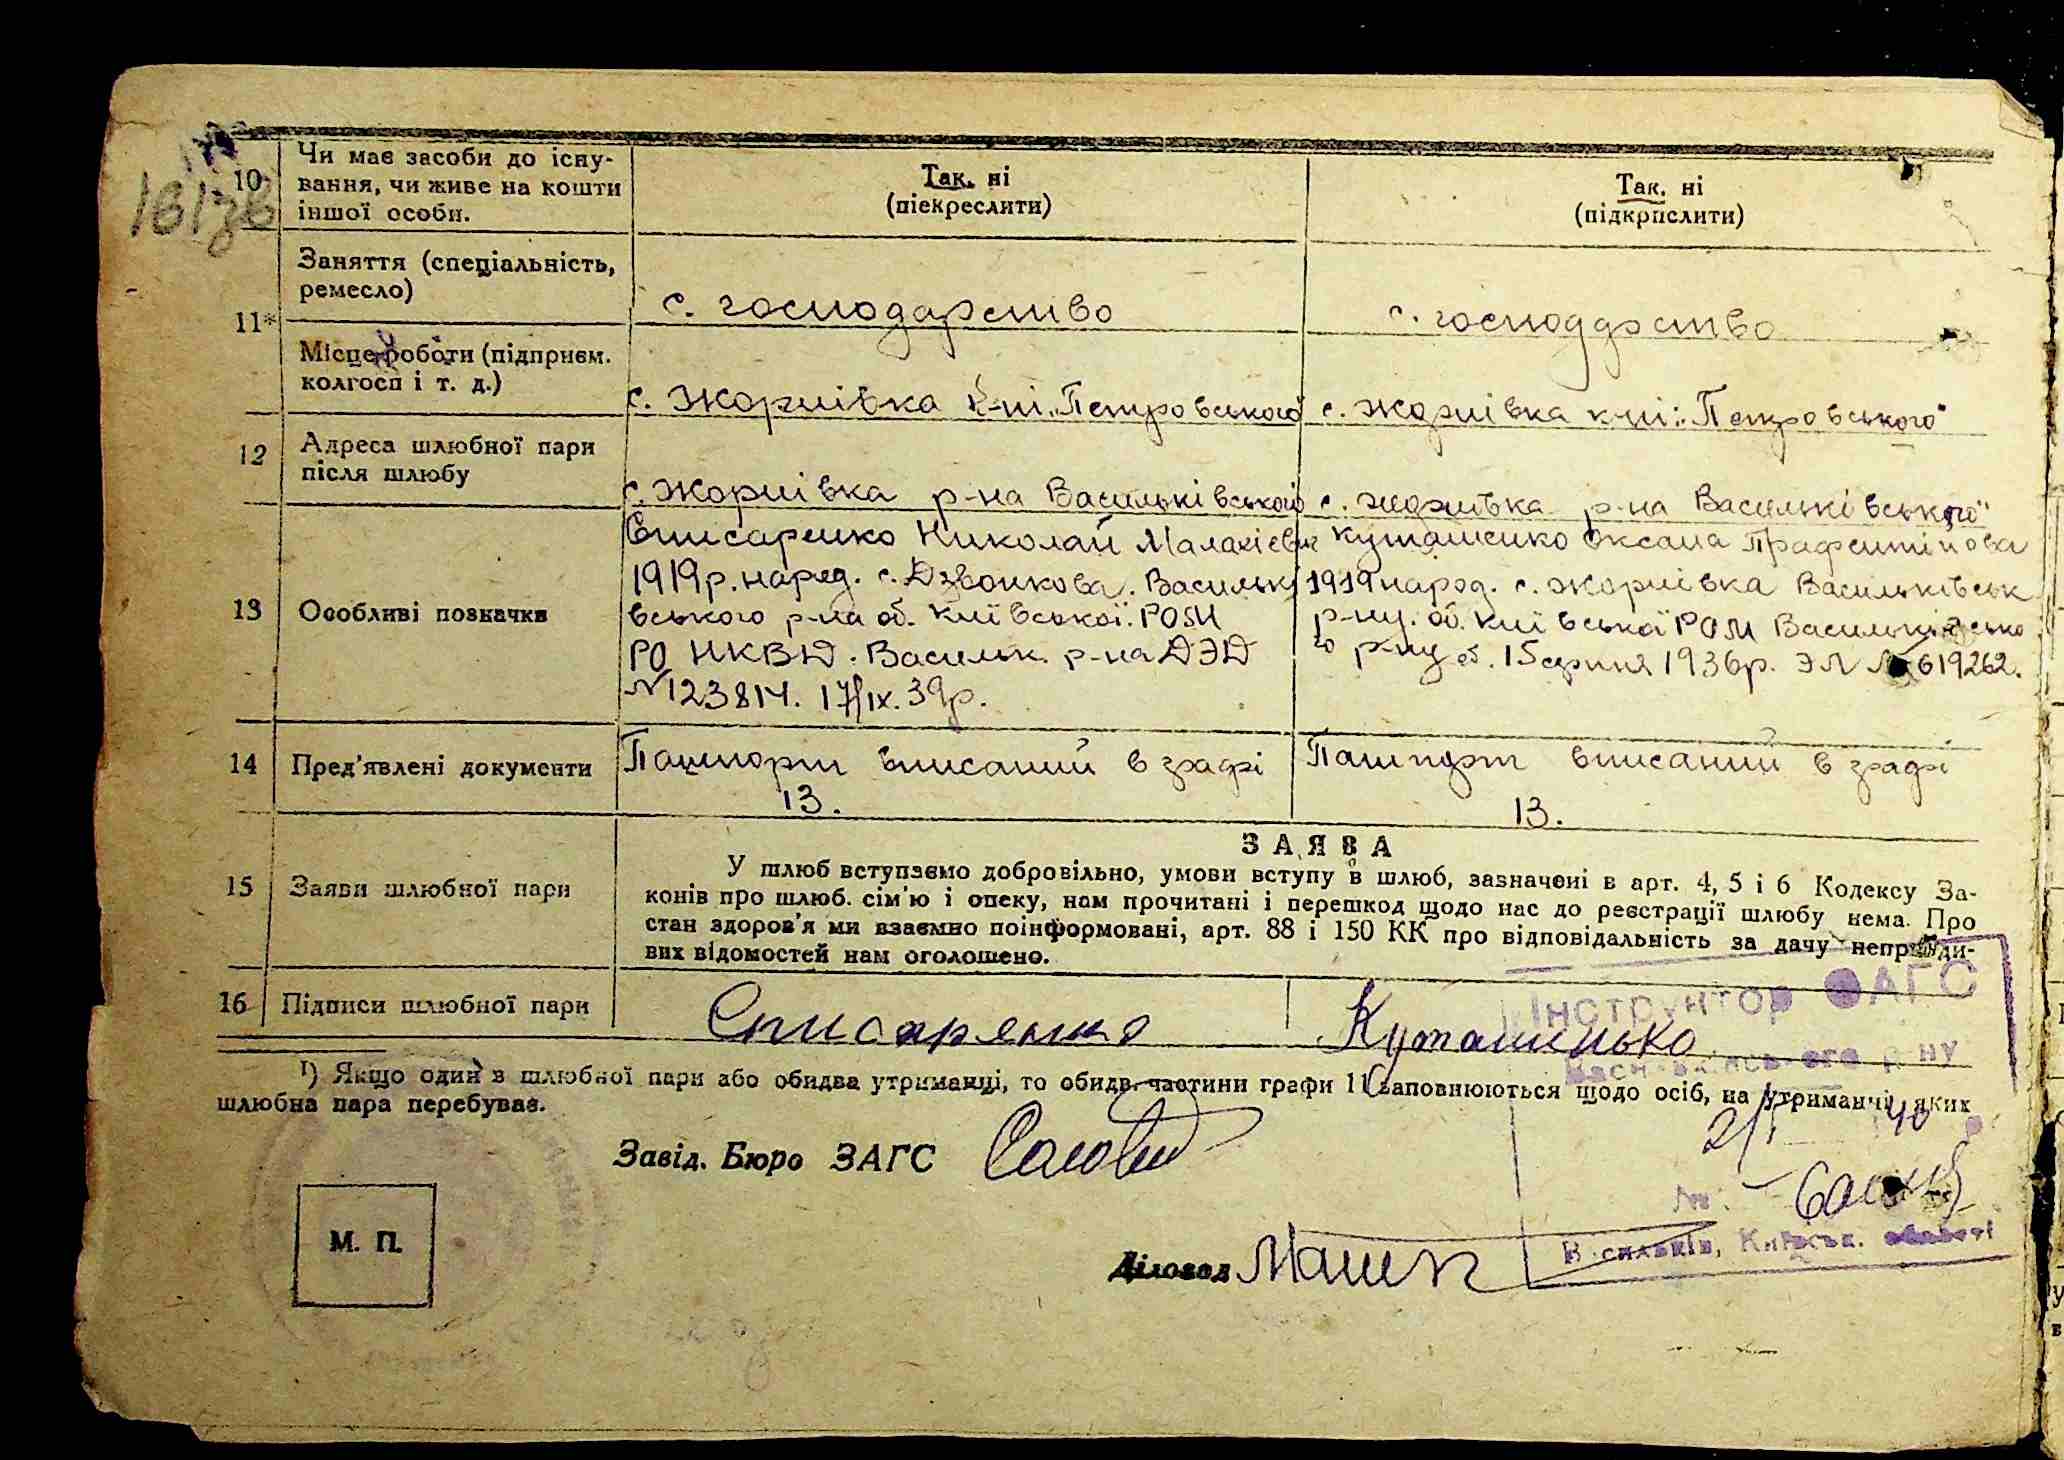 10 Чи має засоби до існу-
вання, чи живе на кошти
іншої особи.
Так. ні
(піекреслити)
Так. ні
(підкрпслити)
11* Заняття (спеціальність,
ремесло)
с. господарство
с. господарство
Місце роботи (підприєм.
колгосп і т. д.)
с. Жорнівка к-пі „Петровського"
с. Жорнівка к-пі „Петровського"
12 Адреса шлюбної пари
після шлюбу
с. Жорнівка р-на Васильківського
с. Жорнівка р-на Васильківського
13 Особливі позначки
Списаренко Николай Малахієвич
1919р. народ. с. Дзвонкова. Василькі
вського р-на об. Київської. РОМ
РО НКВД. Васильк. р-на ДЭД
N 123814. 17/IX. 39р.
Куташенко Оксана
1919 народ. с. Жорнівка Васильківськ
р-ну. об. Київської РОМ Васильківсько
го р-ну 15 серпня 1936р. ЭЛ № 619262.
14 Пред'явлені документи
Пашпорт вписаний в графі
13.
Пашпорт вписаний в графі
13.
15 Заяви шлюбної пари
ЗАЯВА
У шлюб вступаємо добровільно, умови вступу в шлюб, зазначені в арт. 4, 5 і 6 Кодексу За-
конів про шлюб. сім'ю і опеку, нам прочитані і перешкод щодо нас до реєстрації шлюбу нема. Про
стан здоров'я ми взаємно поінформовані, арт. 88 і 150 КК про відповідальність за дачу неправди-
вих відомостей нам оголошено.
16 Підписи шлюбної пари
Списаренко
Куташинько
Інструктор ЗАГС
Васильківського р-ну
¹) Якщо один з шлюбної пари або обидва утриманці, то обидв. частини графи 11 заповнюються щодо осіб, на утриманні яких
шлюбна пара перебуває.
Завід. Бюро ЗАГС
40
№
Васильків, Київськ. області
М. П.
Діловод